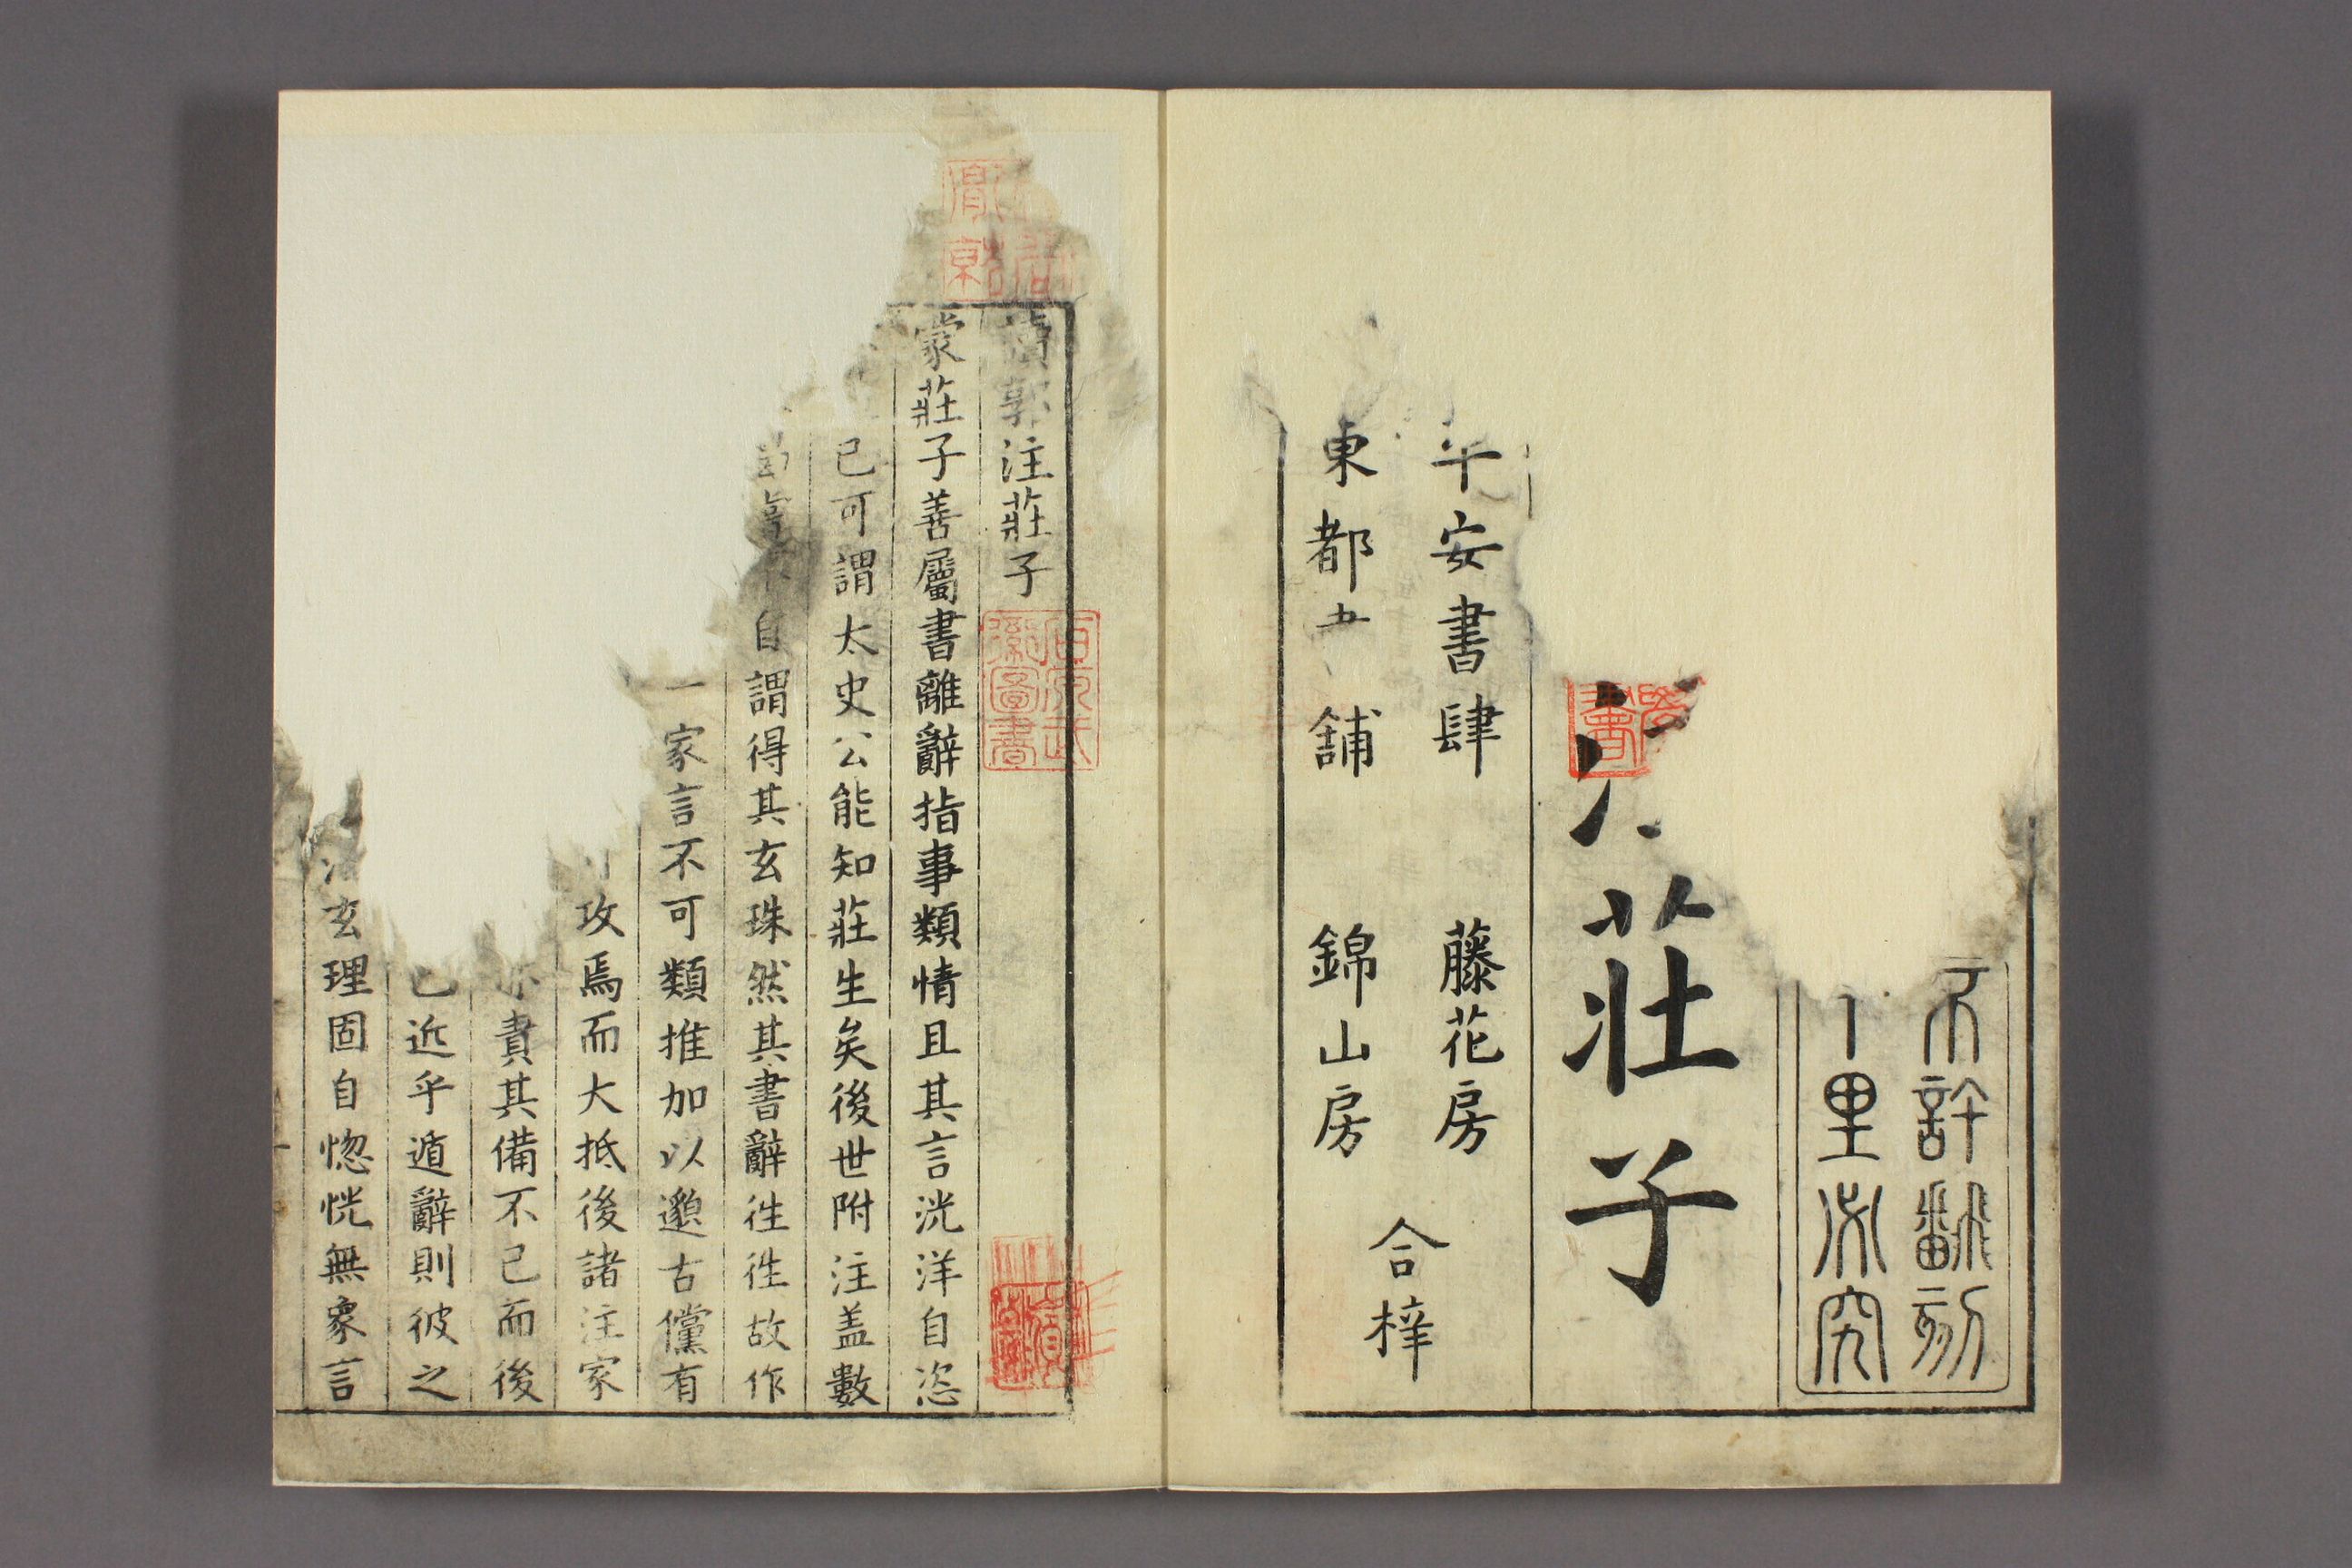 不許翻刻
千里必究
注莊子
平安書肆 藤花房
東都 舖 錦山房
合梓
郭注莊子
蒙莊子善屬書離辭指事類情且其言洸洋自恣
已可謂太史公能知莊生矣後世附注盖數
自謂得其玄珠然其書辭徃徃故作
一家言不可類推加以邈古儻有
攻焉而大抵後諸注家
責其備不已而後
已近乎遁辭則彼之
玄理固自惚恍無象言